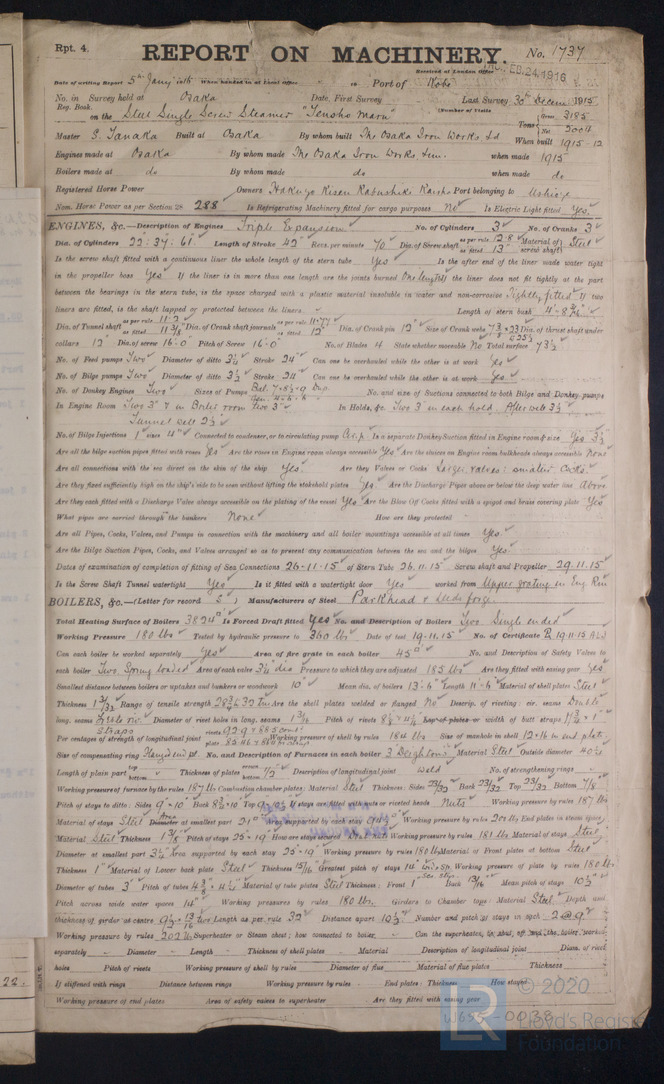 Rpt. 4.
REPORT ON MACHINERY. No. 1737
Received at London Office FEB. 24. 1916
Date of writing Report 5th Jany 1916 When handed in at Local Office Port of Kobe
No. in Survey held at Osaka Date, First Survey Last Survey 30th Decem. 1915
Reg. Book. (Number of Visits
on the Steel Single Screw Steamer "Tensho Maru" Tons Gross 3185 Net
Master S. Tanaka Built at Osaka By whom built The Osaka Iron Works Ld When built 1915-12
Engines made at Osaka By whom made The Osaka Iron Works Lim. when made 1915
Boilers made at do By whom made do when made do
Registered Horse Power Owners Kabushiki Kaisha Port belonging to
Nom. Horse Power as per Section 28 288 Is Refrigerating Machinery fitted for cargo purposes No Is Electric Light fitted Yes
ENGINES, &c.—Description of Engines Triple Expansion No. of Cylinders 3 No. of Cranks 3
Dia. of Cylinders 22": 37": 61" Length of Stroke 42" Revs. per minute 70 Dia. of Screw shaft as per rule 12.8 as fitted 13" Material of screw shaft Steel
Is the screw shaft fitted with a continuous liner the whole length of the stern tube Yes Is the after end of the liner made water tight
in the propeller boss Yes If the liner is in more than one length are the joints burned One length If the liner does not fit tightly at the part
between the bearings in the stern tube, is the space charged with a plastic material insoluble in water and non-corrosive Tightly fitted If two
liners are fitted, is the shaft lapped or protected between the liners Length of stern bush 4'-8
Dia. of Tunnel shaft as per rule 11.2 as fitted 11 3/8" Dia. of Crank shaft journals as per rule 11.77 as fitted 12" Dia. of Crank pin 12" Size of Crank webs Dia. of thrust shaft under
collars 12" Dia. of screw 16'-0" Pitch of Screw 16'-0" No. of Blades 4 State whether moveable No Total surface 73 1/2
No. of Feed pumps Two Diameter of ditto 2 3/4 Stroke 24" Can one be overhauled while the other is at work Yes
No. of Bilge pumps Two Diameter of ditto 3 1/2 Stroke 24" Can one be overhauled while the other is at work Yes
No. of Donkey Engines Two Sizes of Pumps No. and size of Suctions connected to both Bilge and Donkey pumps
In Engine Room Two 3" & in Boiler room Two 3" In Holds, &c. Two 3" in each hold. After well 3 1/2
Tunnel well 2 1/2"
No. of Bilge Injections 1 sizes 4" Connected to condenser, or to circulating pump Is a separate Donkey Suction fitted in Engine room & size Yes 3 1/2
Are all the bilge suction pipes fitted with roses Yes Are the roses in Engine room always accessible Yes Are the sluices on Engine room bulkheads always accessible None
Are all connections with the sea direct on the skin of the ship Yes. Are they Valves or Cocks Larger valves: smaller Cocks.
Are they fixed sufficiently high on the ship's side to be seen without lifting the stokehold plates Yes Are the Discharge Pipes above or below the deep water line Above
Are they each fitted with a Discharge Valve always accessible on the plating of the vessel Yes Are the Blow Off Cocks fitted with a spigot and brass covering plate Yes
What pipes are carried through the bunkers None How are they protected
Are all Pipes, Cocks, Valves, and Pumps in connection with the machinery and all boiler mountings accessible at all times Yes.
Are the Bilge Suction Pipes, Cocks, and Valves arranged so as to prevent any communication between the sea and the bilges Yes
Dates of examination of completion of fitting of Sea Connections 26-11-15 of Stern Tube 26.11.15 Screw shaft and Propeller 29.11.15
Is the Screw Shaft Tunnel watertight Yes Is it fitted with a watertight door Yes worked from Upper grating in Eng. Rm
BOILERS, &c.—(Letter for record S) Manufacturers of Steel Parkhead & Leeds forge
Total Heating Surface of Boilers 3824 Is Forced Draft fitted Yes No. and Description of Boilers Two Single ended
Working Pressure 180 lbs Tested by hydraulic pressure to 360 lbs. Date of test 19-11-15 No. of Certificate
Can each boiler be worked separately Yes Area of fire grate in each boiler 45 No. and Description of Safety Valves to
each boiler Two Spring loaded Area of each valve 3 1/4" dia Pressure to which they are adjusted 185 lbs Are they fitted with easing gear Yes
Smallest distance between boilers or uptakes and bunkers or woodwork 10" Mean dia. of boilers 13'-6" Length 11'-6" Material of shell plates Steel
Thickness 1 3/32 Range of tensile strength 28 3/4 & 30 Are the shell plates welded or flanged No Descrip. of riveting: cir. seams Double
long. seams Diameter of rivet holes in long. seams 1 3/16 Pitch of rivets Lap of plates or width of butt straps
Per centages of strength of longitudinal joint rivets plate Working pressure of shell by rules 184 lbs Size of manhole in shell 12 x 16 in end plate.
Size of compensating ring Flanged end pl. No. and Description of Furnaces in each boiler 3 Deighton Material Steel Outside diameter 40
Length of plain part top bottom Thickness of plates crown bottom 1/2" Description of longitudinal joint Weld No. of strengthening rings
Working pressure of furnace by the rules 187 lbs Combustion chamber plates: Material Steel Thickness: Sides 23/32 Back 23/32 Top 23/32 Bottom 7/8"
Pitch of stays to ditto: Sides 9" x 10" Back 8 3/4 x 10 Top 9 x 10 If stays are fitted with nuts or riveted heads Nuts Working pressure by rules 187 lbs
Material of stays Steel Area Diameter at smallest part Area supported by each stay Working pressure by rules 205 lbs End plates in steam space
Material Steel Thickness 1 3/8 Pitch of stays 25 x 19 How are stays secured Nuts Working pressure by rules 181 lbs Material of stays Steel
Diameter at smallest part 3 1/4" Area supported by each stay 25 x 19 Working pressure by rules 180 lbs Material of Front plates at bottom Steel
Thickness 1" Material of Lower back plate Steel Thickness 15/16 Greatest pitch of stays 14" Working pressure of plate by rules 180 lbs.
Diameter of tubes 3" Pitch of tubes 4 3/8 x 4 1/4 Material of tube plates Steel Thickness: Front 1" Back 13/16 Mean pitch of stays 10 1/2
Pitch across wide water spaces 14" Working pressures by rules 180 lbs. Girders to Chamber tops: Material Steel Depth and
thickness of girder at centre Length as per rule 32" Distance apart 10 1/2" Number and pitch of stays in each 2 @ 9"
Working pressure by rules 202 lbs Superheater or Steam chest; how connected to boiler Can the superheater be shut off and the boiler worked
separately – Diameter – Length – Thickness of shell plates – Material Description of longitudinal joint Diam. of rivet
holes Pitch of rivets Working pressure of shell by rules Diameter of flue Material of flue plates Thickness
If stiffened with rings Distance between rings Working pressure by rules – End plates: Thickness How stayed
Working pressure of end plates Area of safety valves to superheater – Are they fitted with easing gear
22.
LR
© 2020
Lloyd's Register
Foundation
W657-0038